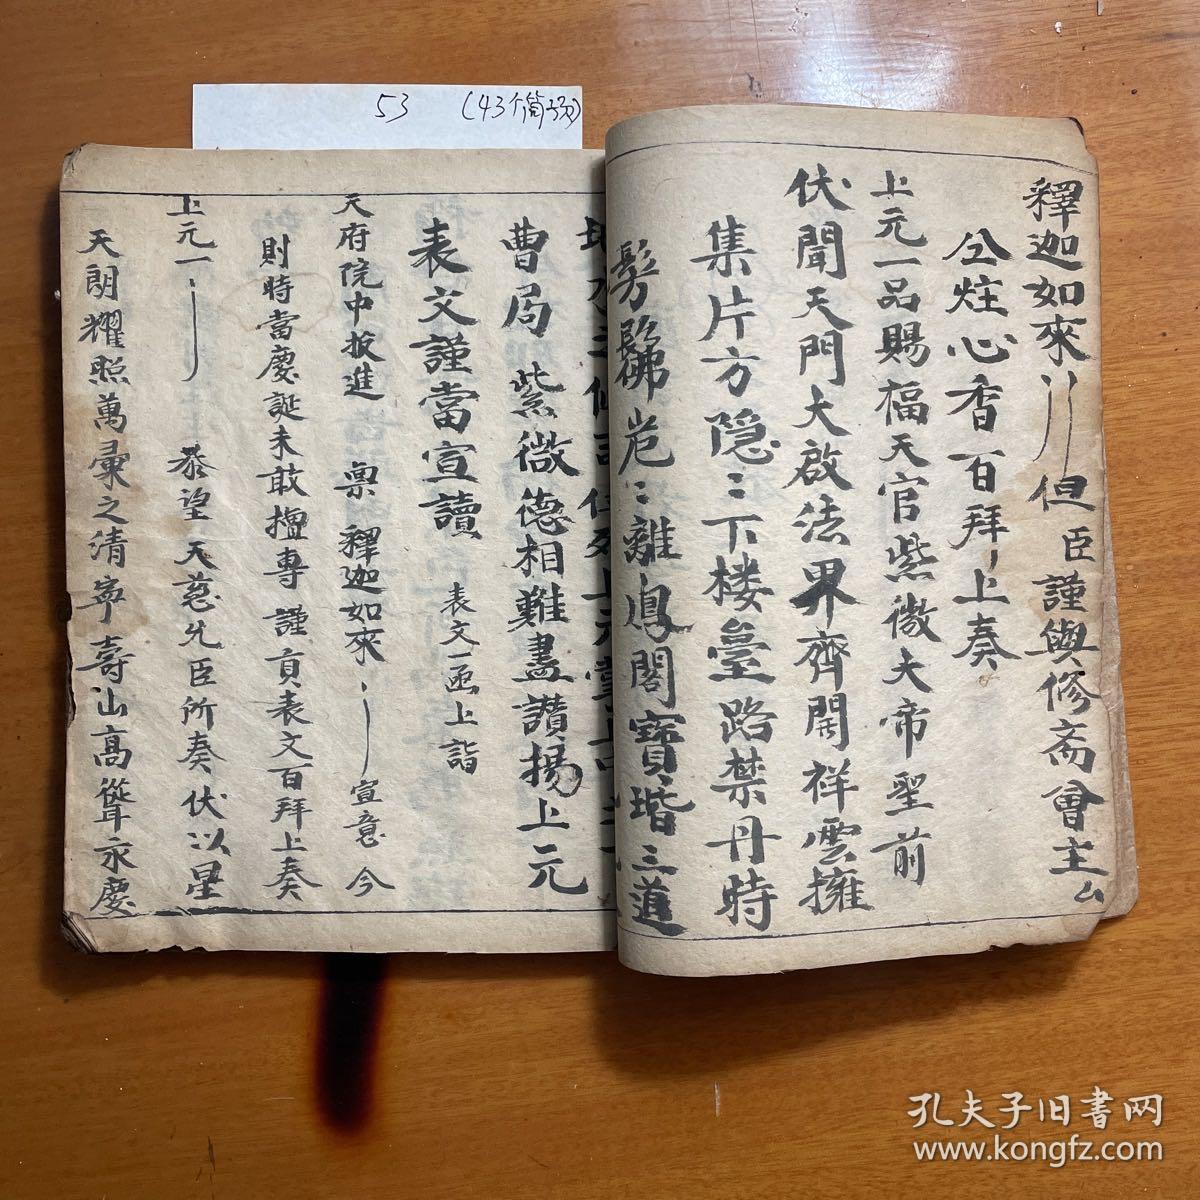 53 (43个筒子页)
釋迦如來 但臣謹與修斋會主ム
仝炷心香百拜上奏
上元一品賜福天官紫微大帝聖前
伏聞天門大啟法界齊開祥雲擁
集片方隐〻下楼臺路禁丹時
髣髴岩〻離鳳閣寶堦三道
曹局 紫微德相難盡讃揚上元
表文謹當宣讀 表文一函上詣
天府院中投進 禀釋迦如來 宣意今
則時當慶誕未敢擅專 謹賫表文百拜上奏
上元一 恭望 天慈允臣所奏伏以星
天朗耀照萬彙之清寧壽山高聳永慶
孔夫子旧书网
www.kongfz.com